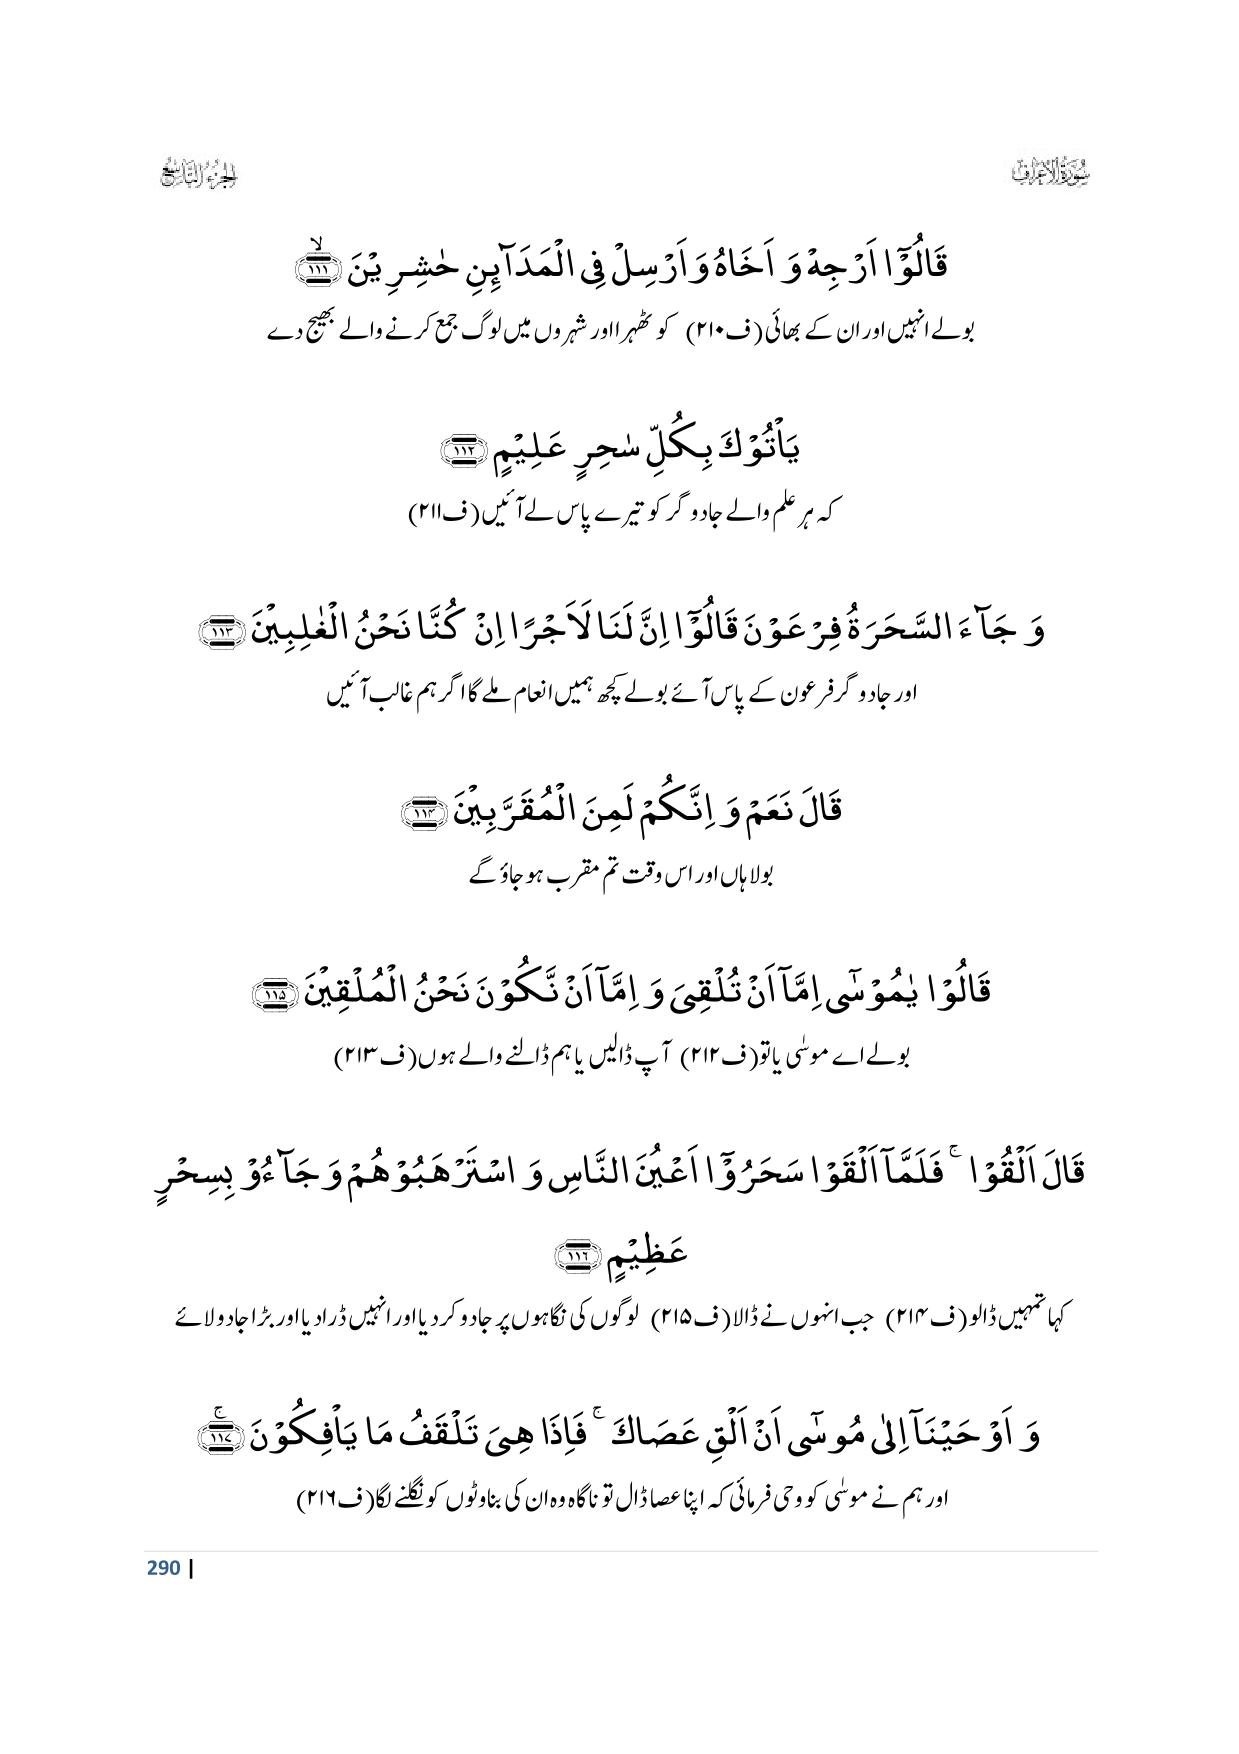 سُوْرَةُ الْاَعْرَاف
الجزء التاسع
قَالُوْۤا اَرْجِهْ وَ اَخَاهُ وَ اَرْسِلْ فِی الْمَدَآىِٕنِ حٰشِرِیْنَۙ۝۱۱۱
بولے انہیں اور ان کے بھائی (ف۲۱۰) کو ٹھہرا اور شہروں میں لوگ جمع کرنے والے بھیج دے
یَاْتُوْكَ بِكُلِّ سٰحِرٍ عَلِیْمٍ۝۱۱۲
کہ ہر علم والے جادو گر کو تیرے پاس لے آئیں (ف۲۱۱)
وَ جَآءَ السَّحَرَةُ فِرْعَوْنَ قَالُوْۤا اِنَّ لَنَا لَاَجْرًا اِنْ كُنَّا نَحْنُ الْغٰلِبِیْنَ۝۱۱۳
اور جادو گر فرعون کے پاس آئے بولے کچھ ہمیں انعام ملے گا اگر ہم غالب آئیں
قَالَ نَعَمْ وَ اِنَّكُمْ لَمِنَ الْمُقَرَّبِیْنَ۝۱۱۴
بولا ہاں اور اس وقت تم مقرب ہو جاؤ گے
قَالُوْا یٰمُوْسٰۤى اِمَّاۤ اَنْ تُلْقِیَ وَ اِمَّاۤ اَنْ نَّكُوْنَ نَحْنُ الْمُلْقِیْنَ۝۱۱۵
بولے اے موسٰی یا تو (ف۲۱۲) آپ ڈالیں یا ہم ڈالنے والے ہوں (ف۲۱۳)
قَالَ اَلْقُوْاۚ فَلَمَّاۤ اَلْقَوْا سَحَرُوْۤا اَعْیُنَ النَّاسِ وَ اسْتَرْهَبُوْهُمْ وَ جَآءُوْ بِسِحْرٍ
عَظِیْمٍ۝۱۱۶
کہا تمہیں ڈالو (ف۲۱۴) جب انہوں نے ڈالا (ف۲۱۵) لوگوں کی نگاہوں پر جادو کر دیا اور انہیں ڈرا دیا اور بڑا جادو لائے
وَ اَوْحَیْنَاۤ اِلٰى مُوْسٰۤى اَنْ اَلْقِ عَصَاكَۚ فَاِذَا هِیَ تَلْقَفُ مَا یَاْفِكُوْنَۚ۝۱۱۷
اور ہم نے موسٰی کو وحی فرمائی کہ اپنا عصا ڈال تو ناگاہ وہ ان کی بناوٹوں کو نگلنے لگا (ف۲۱۶)
290 |